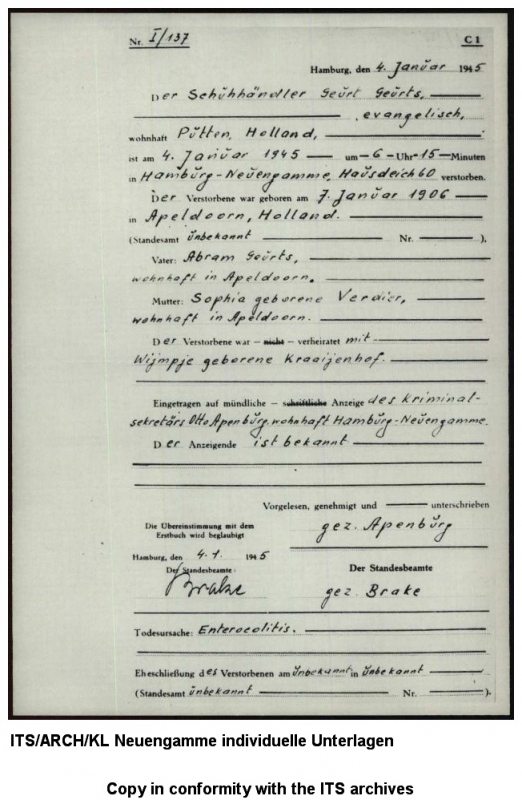 Nr. I/137 C 1
Hamburg, den 4. Januar 1945
Der Schuhhändler Geurt Geurts,
evangelisch,
wohnhaft Putten, Holland,
ist am 4. Januar 1945 um 6 Uhr 15 Minuten
in Hamburg-Neuengamme, Hausdeich 60 verstorben.
Der Verstorbene war geboren am 7. Januar 1906
in Apeldoorn, Holland.
(Standesamt unbekannt Nr. ),
Vater: Abram Geurts,
wohnhaft in Apeldoorn.
Mutter: Sophia geborene Verdier,
wohnhaft in Apeldoorn.
Der Verstorbene war – nicht – verheiratet mit
Wijmpje geborene Kraaijenhof.
Eingetragen auf mündliche – schriftliche Anzeige des Kriminal-
sekretärs Otto Apenburg, wohnhaft Hamburg-Neuengamme.
Der Anzeigende ist bekannt
Vorgelesen, genehmigt und unterschrieben
Die Übereinstimmung mit dem
Erstbuch wird beglaubigt
gez. Apenburg
Hamburg, den 4.1. 1945
Der Standesbeamte:
Brake
Der Standesbeamte
gez. Brake
Todesursache: Enterocolitis.
Eheschließung des Verstorbenen am unbekannt in unbekannt
(Standesamt unbekannt Nr. ).
ITS/ARCH/KL Neuengamme individuelle Unterlagen
Copy in conformity with the ITS archives